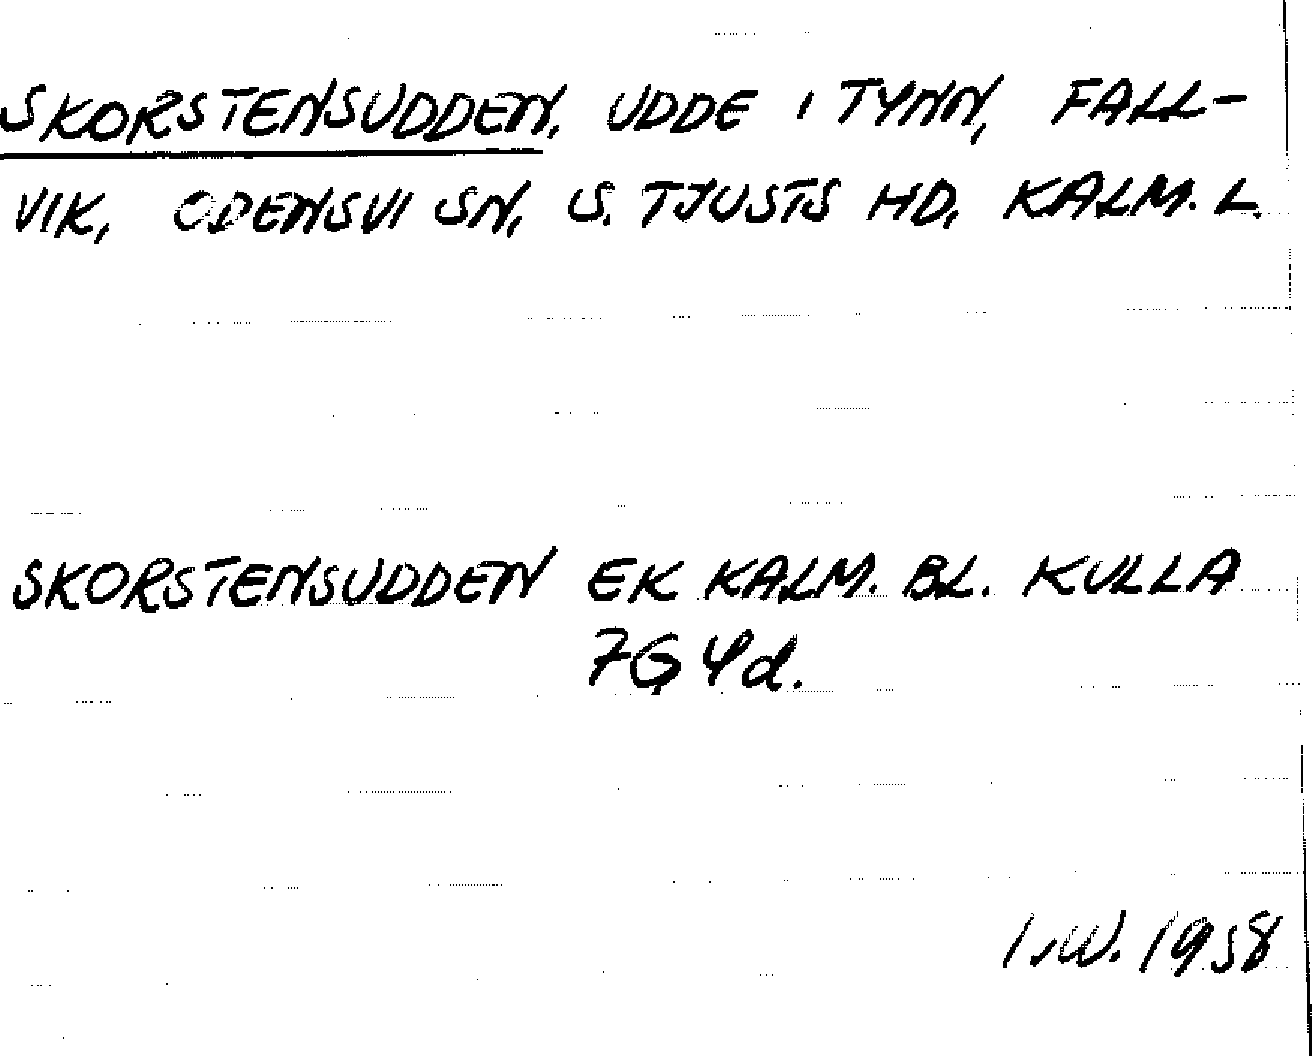 SKORSTENSUDDEN, UDDE I TYNN, FALL-
VIK, ODENSVI SN, S. TJUSTS HD, KALM. L.
SKORSTENSUDDEN EK KALM. BL. KULLA
7G 4d.
I.W. 1958